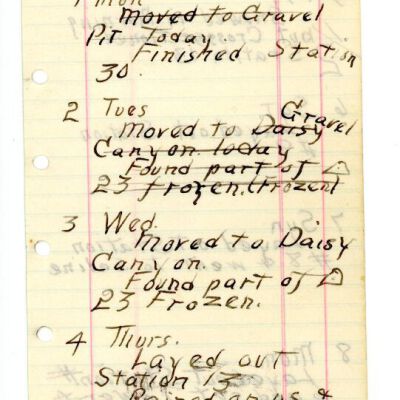 1 Mon
Moved to Gravel
Pit Today.
Finished Station
30.
2 Tues Gravel
Moved to Daisy
Canyon today
Found part of △
23 frozen.(Frozen)
3 Wed.
Moved to Daisy
Canyon.
Found part of △
23 Frozen.
4 Thurs.
Layed out
Station 13